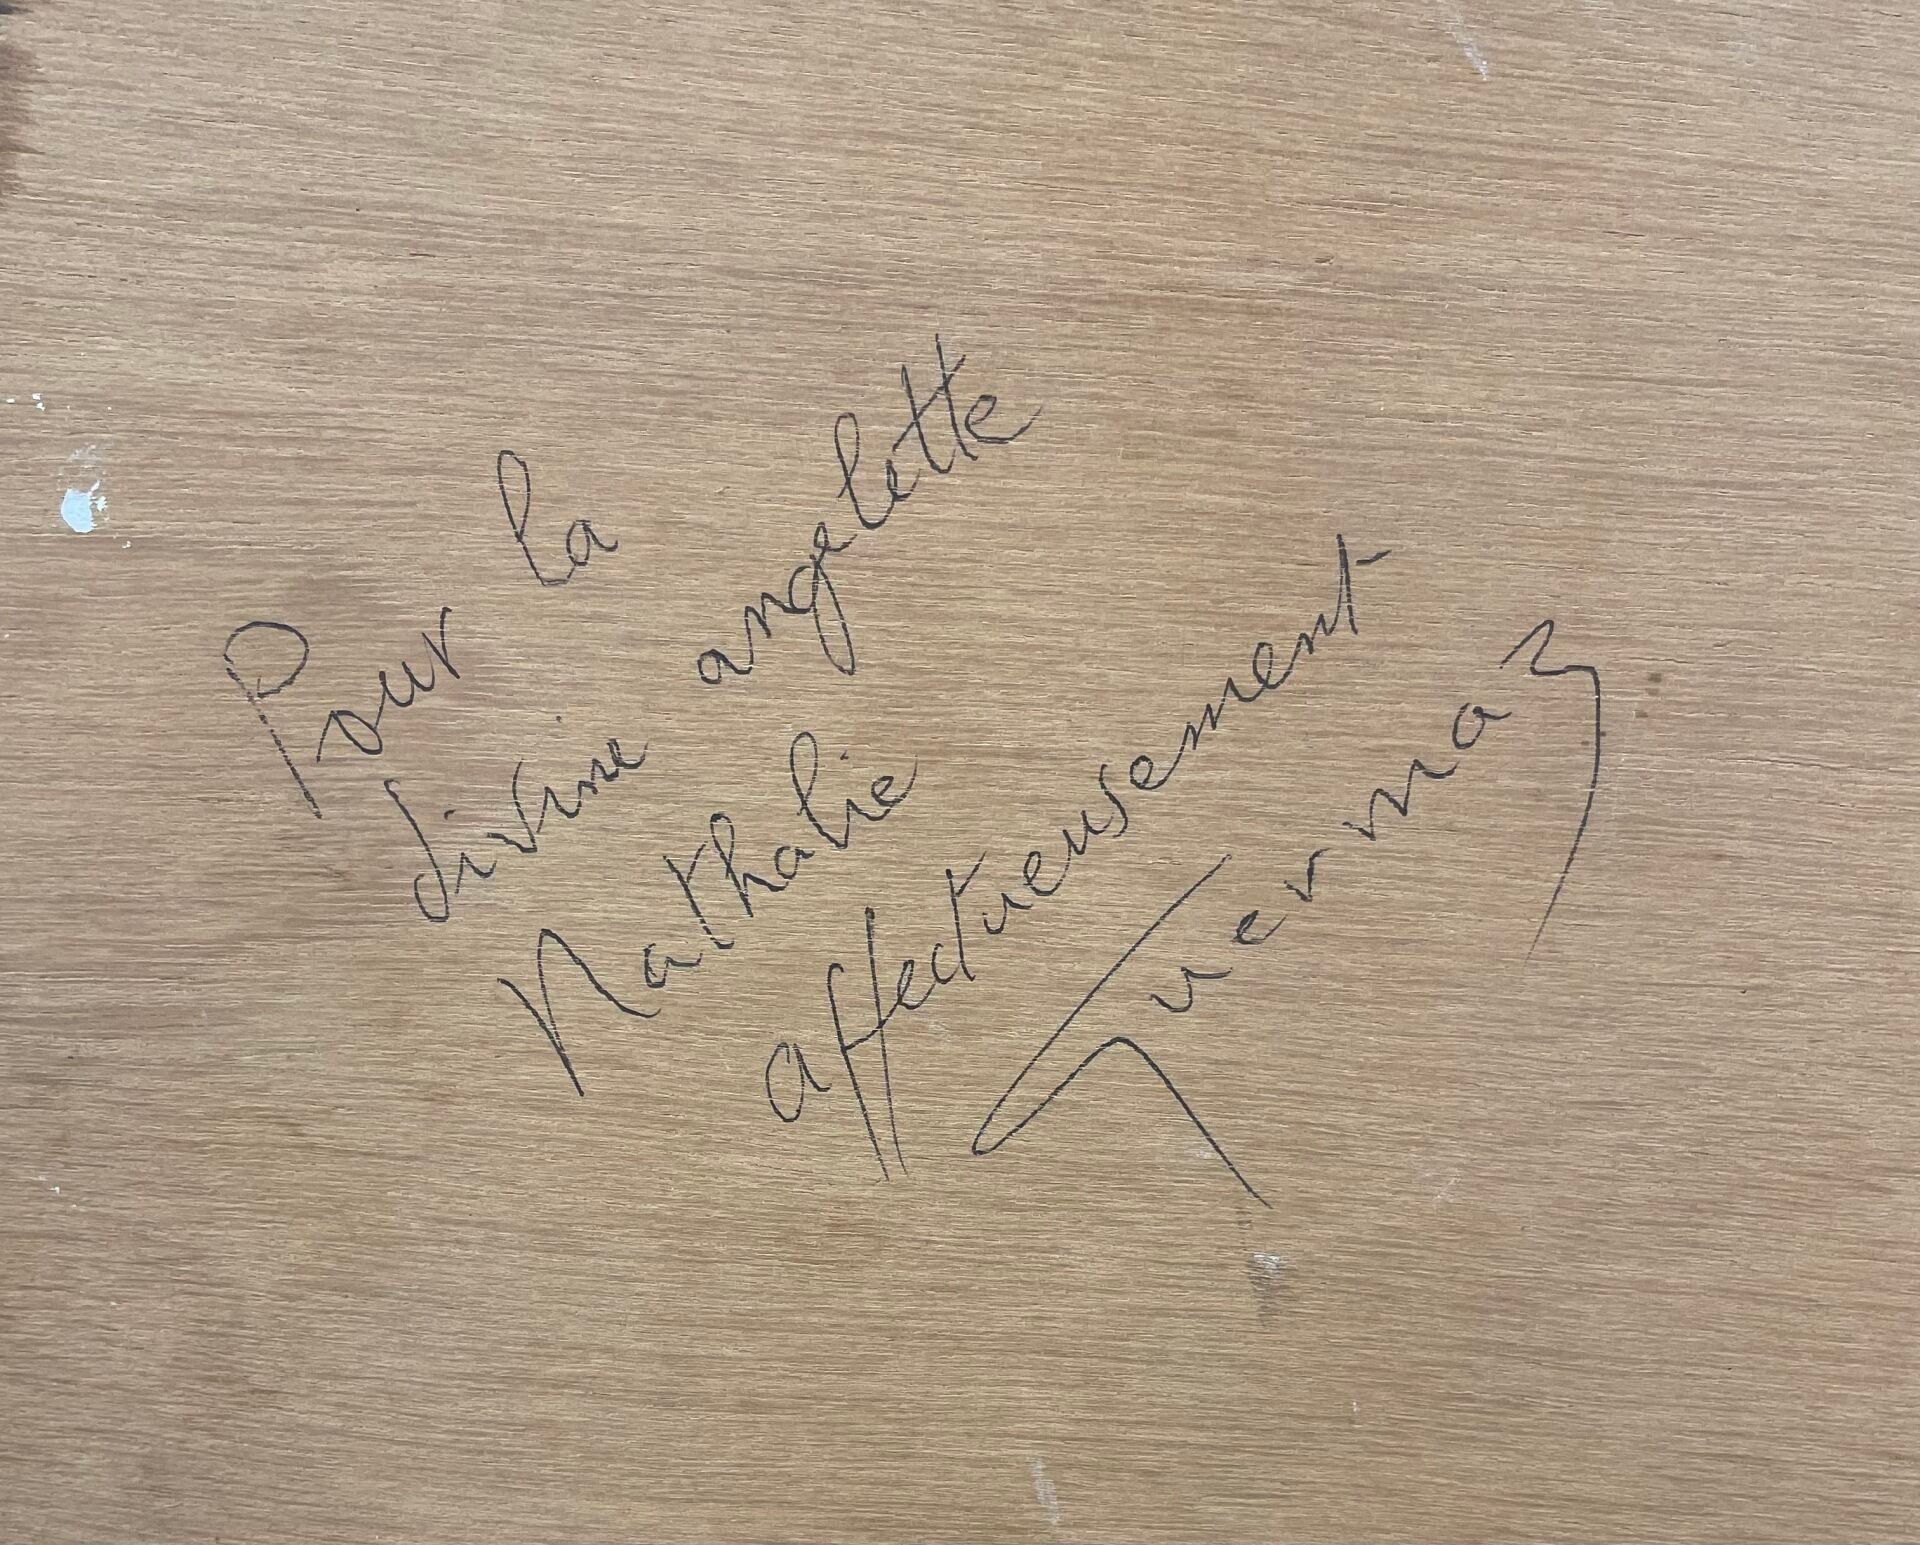 Pour la
divine angelette
Nathalie
affectueusement